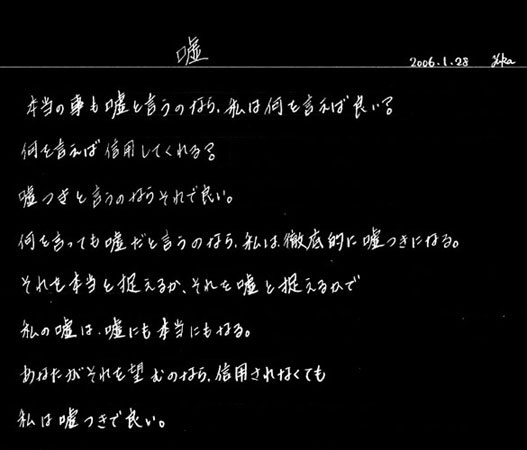 嘘
2006.1.28 yuka
本当の事も嘘と言うのなら、私は何を言えば良い?
何を言えば信用してくれる?
嘘つきと言うのならそれで良い。
何を言っても嘘だと言うのなら、私は、徹底的に嘘つきになる。
それを本当と捉えるか、それを嘘と捉えるかで
私の嘘は、嘘にも本当にもなる。
あなたがそれを望むのなら、信用されなくても
私は嘘つきで良い。